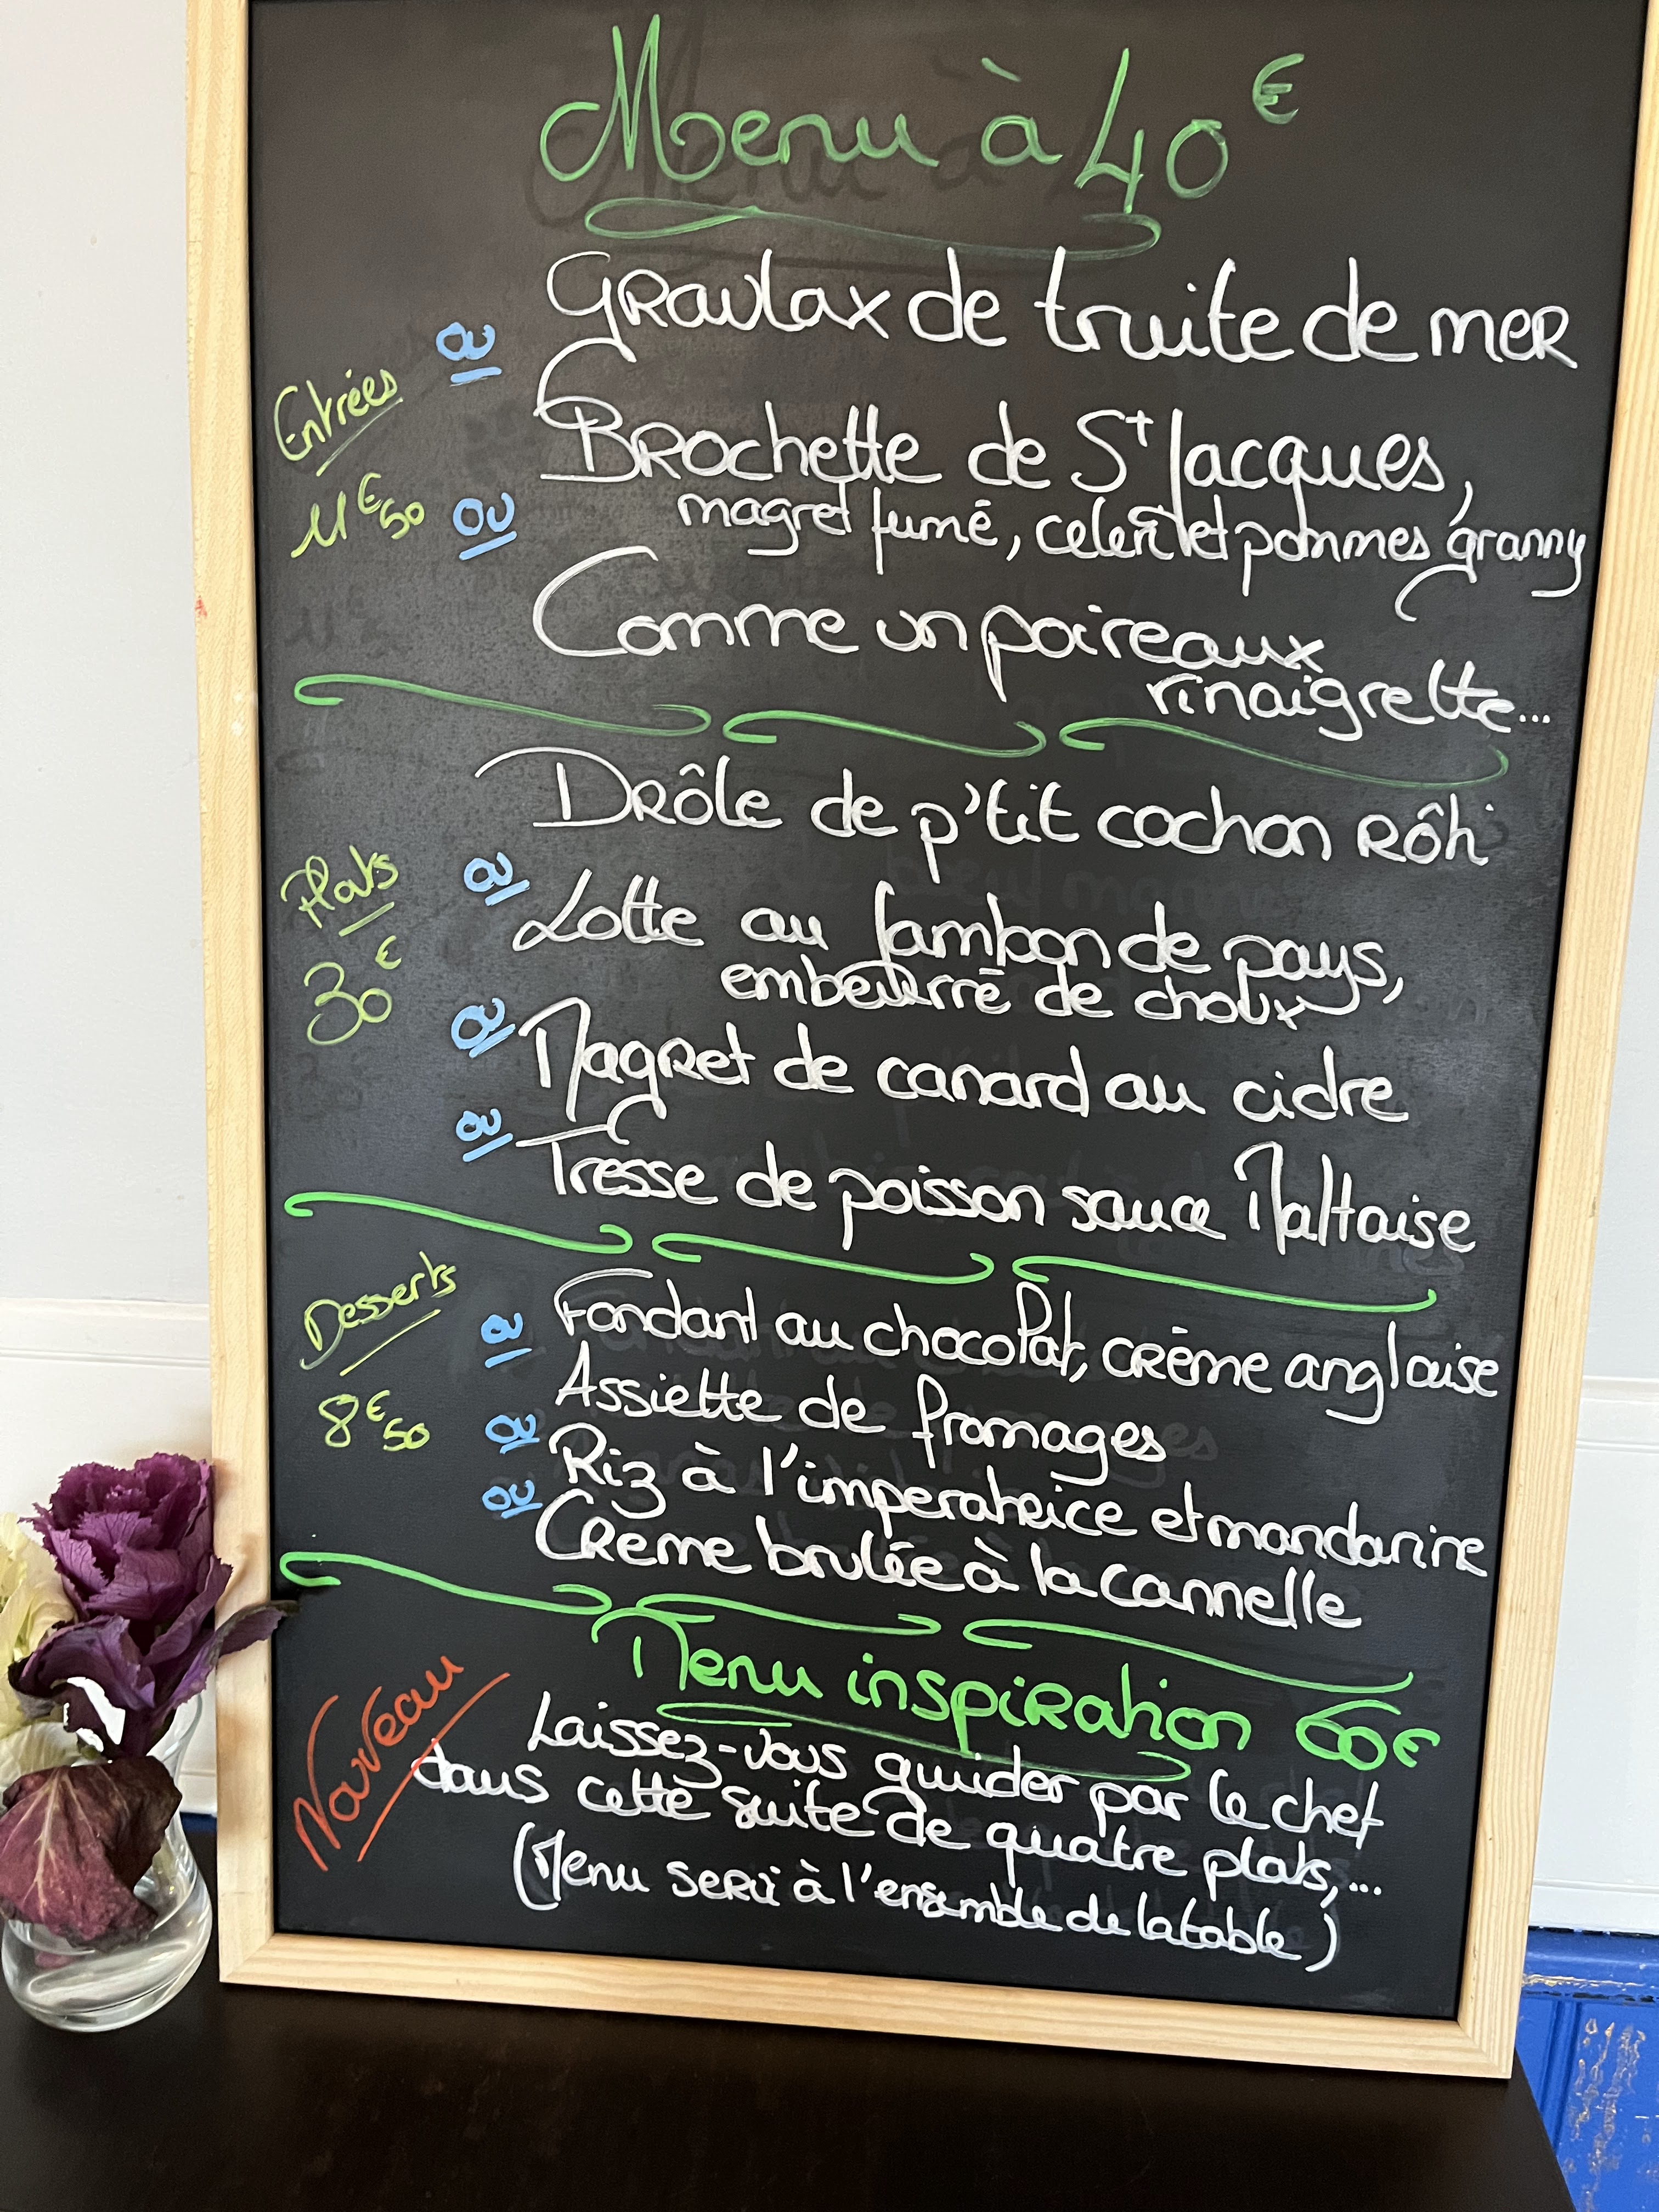 Menu à 40€
Gravlax de truite de mer
ou
Entrées
Brochette de St Jacques,
11€50
ou
magret fumé, celeri et pommes granny
Comme un poireaux
vinaigrette...
Drôle de p'tit cochon rôti
Plats
ou
Lotte au jambon de pays,
30€
embeurré de choux
ou
Magret de canard au cidre
ou
Tresse de poisson sauce Maltaise
Desserts
Fondant au chocolat, crème anglaise
ou
8€50
Assiette de fromages
ou
Riz à l'imperatrice et mandarine
ou
Crème brulée à la cannelle
Menu inspiration 60€
Nouveau
Laissez-vous guider par le chef
dans cette suite de quatre plats,...
(Menu servi à l'ensemble de la table)